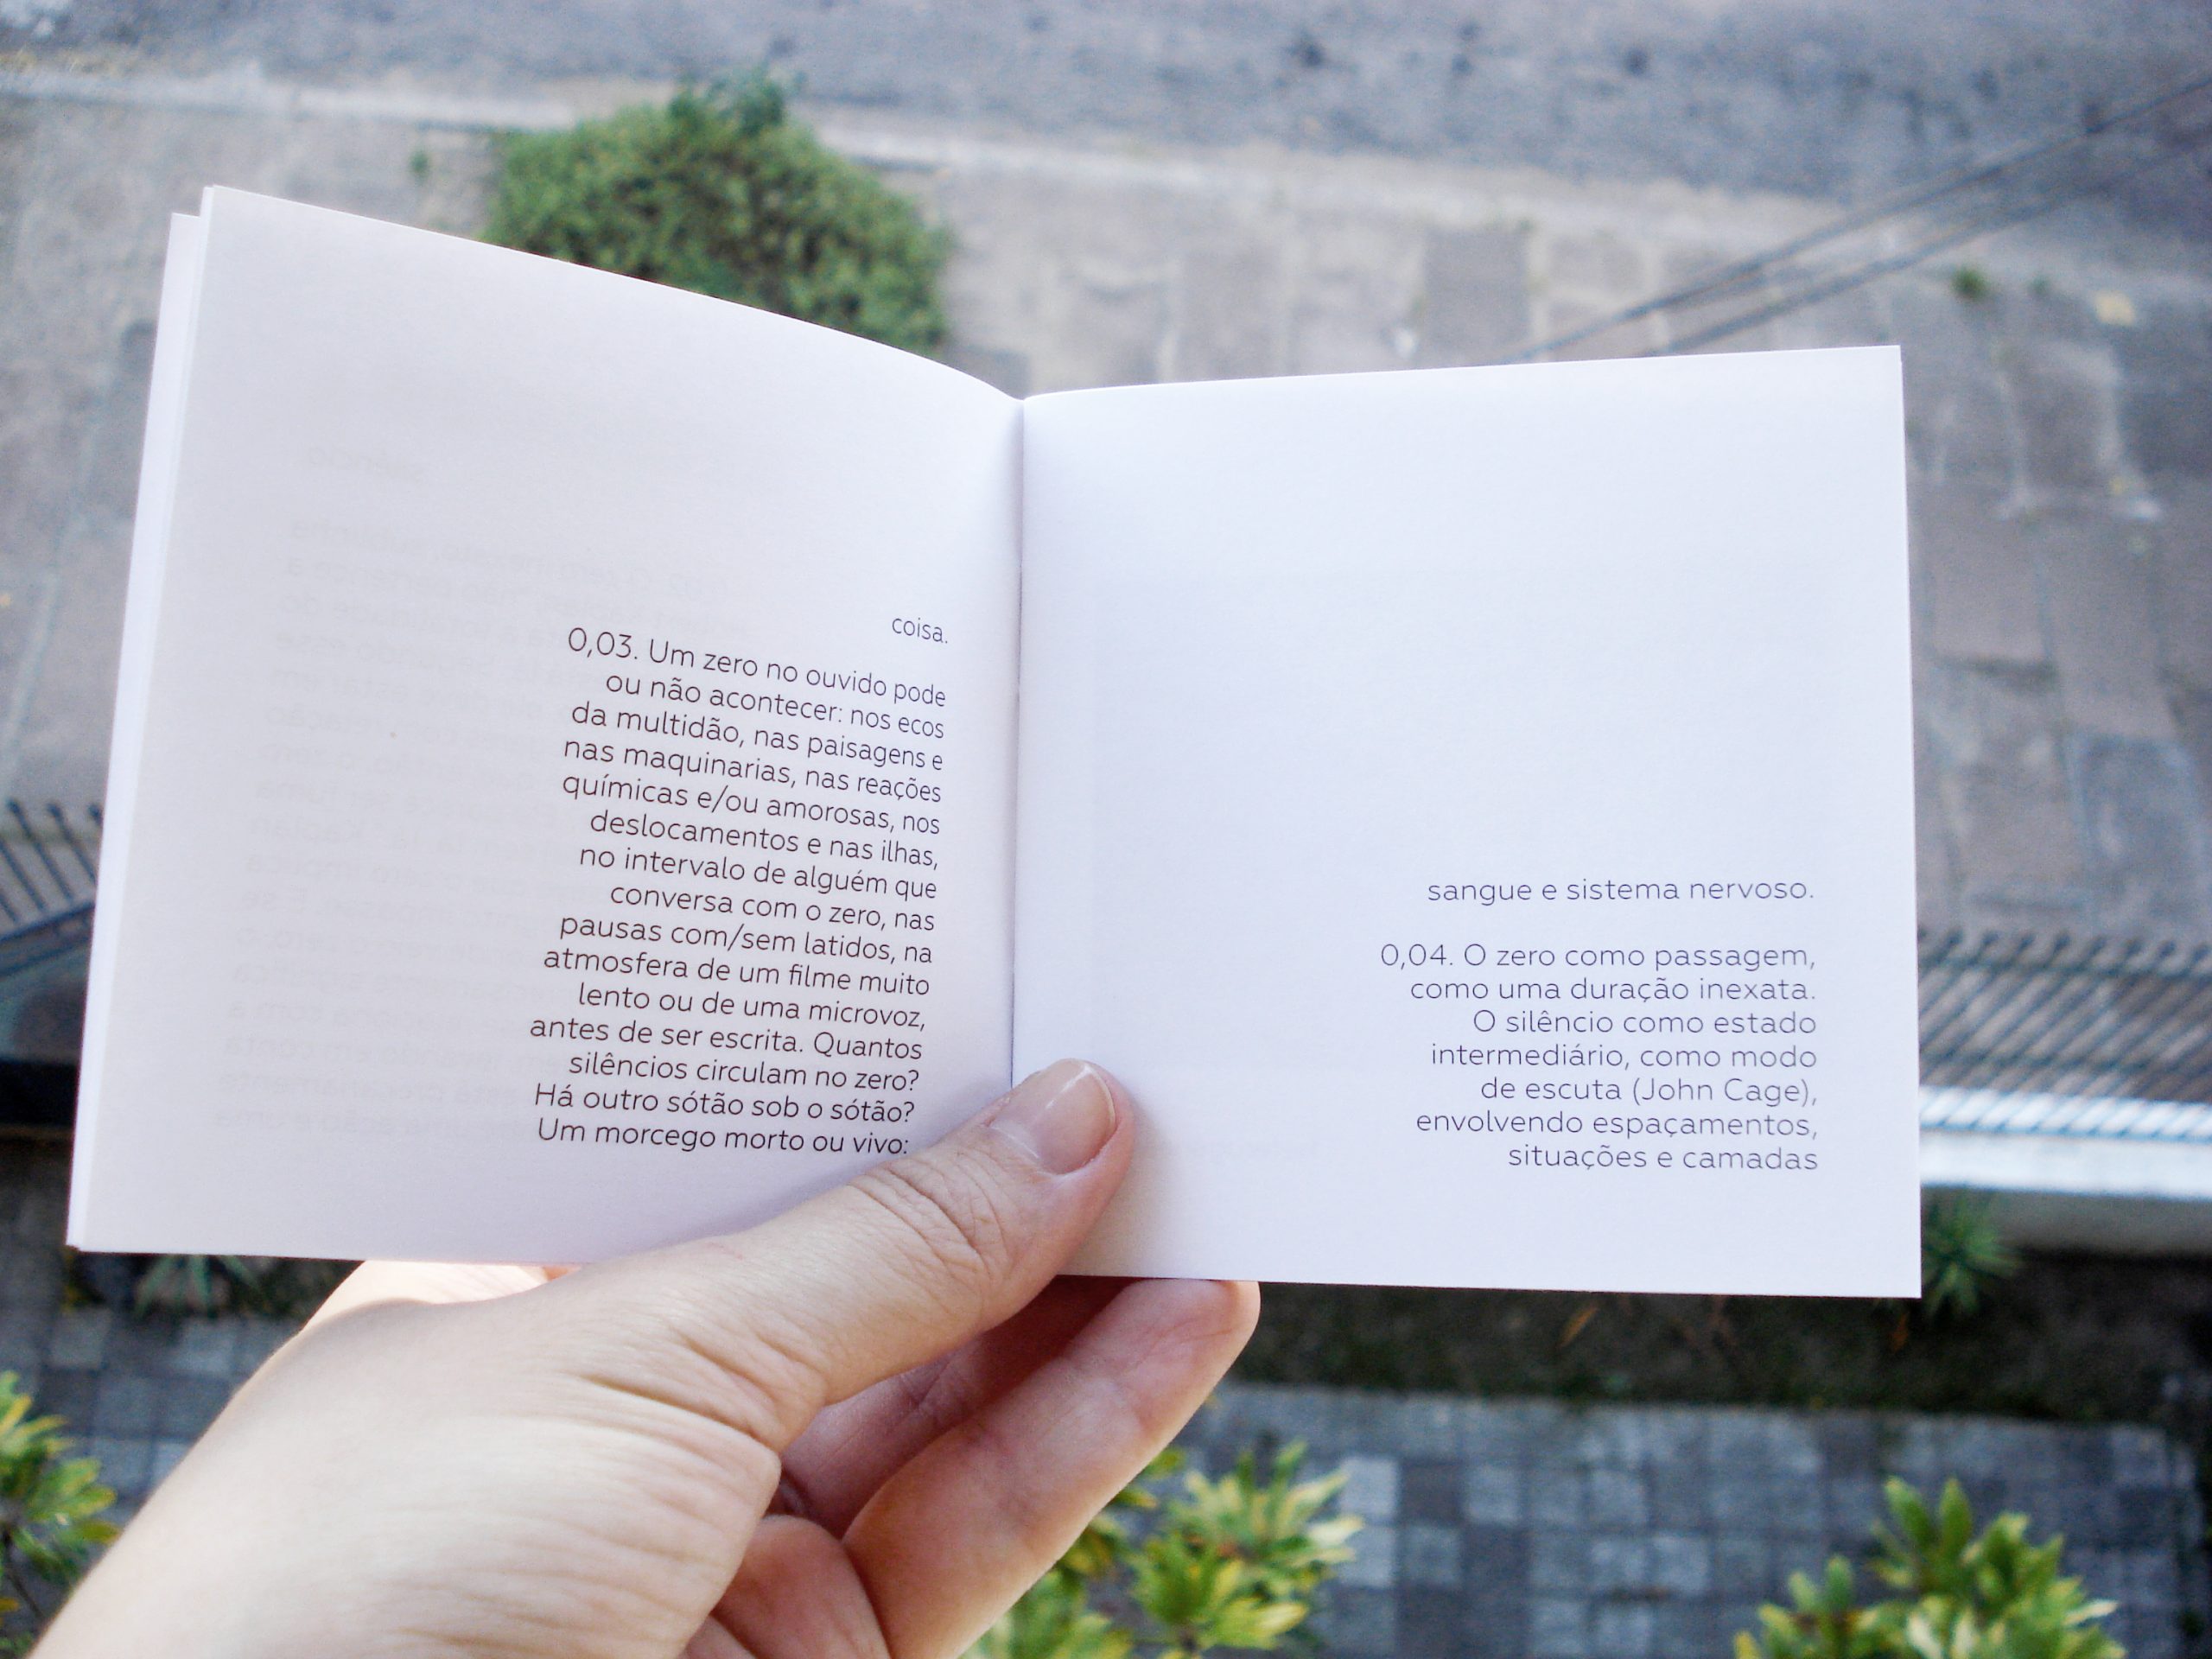 coisa.
0,03. Um zero no ouvido pode
ou não acontecer: nos ecos
da multidão, nas paisagens e
nas maquinarias, nas reações
químicas e/ou amorosas, nos
deslocamentos e nas ilhas,
no intervalo de alguém que
conversa com o zero, nas
pausas com/sem latidos, na
atmosfera de um filme muito
lento ou de uma microvoz,
antes de ser escrita. Quantos
silêncios circulam no zero?
Há outro sótão sob o sótão?
Um morcego morto ou vivo:
sangue e sistema nervoso.
0,04. O zero como passagem,
como uma duração inexata.
O silêncio como estado
intermediário, como modo
de escuta (John Cage),
envolvendo espaçamentos,
situações e camadas